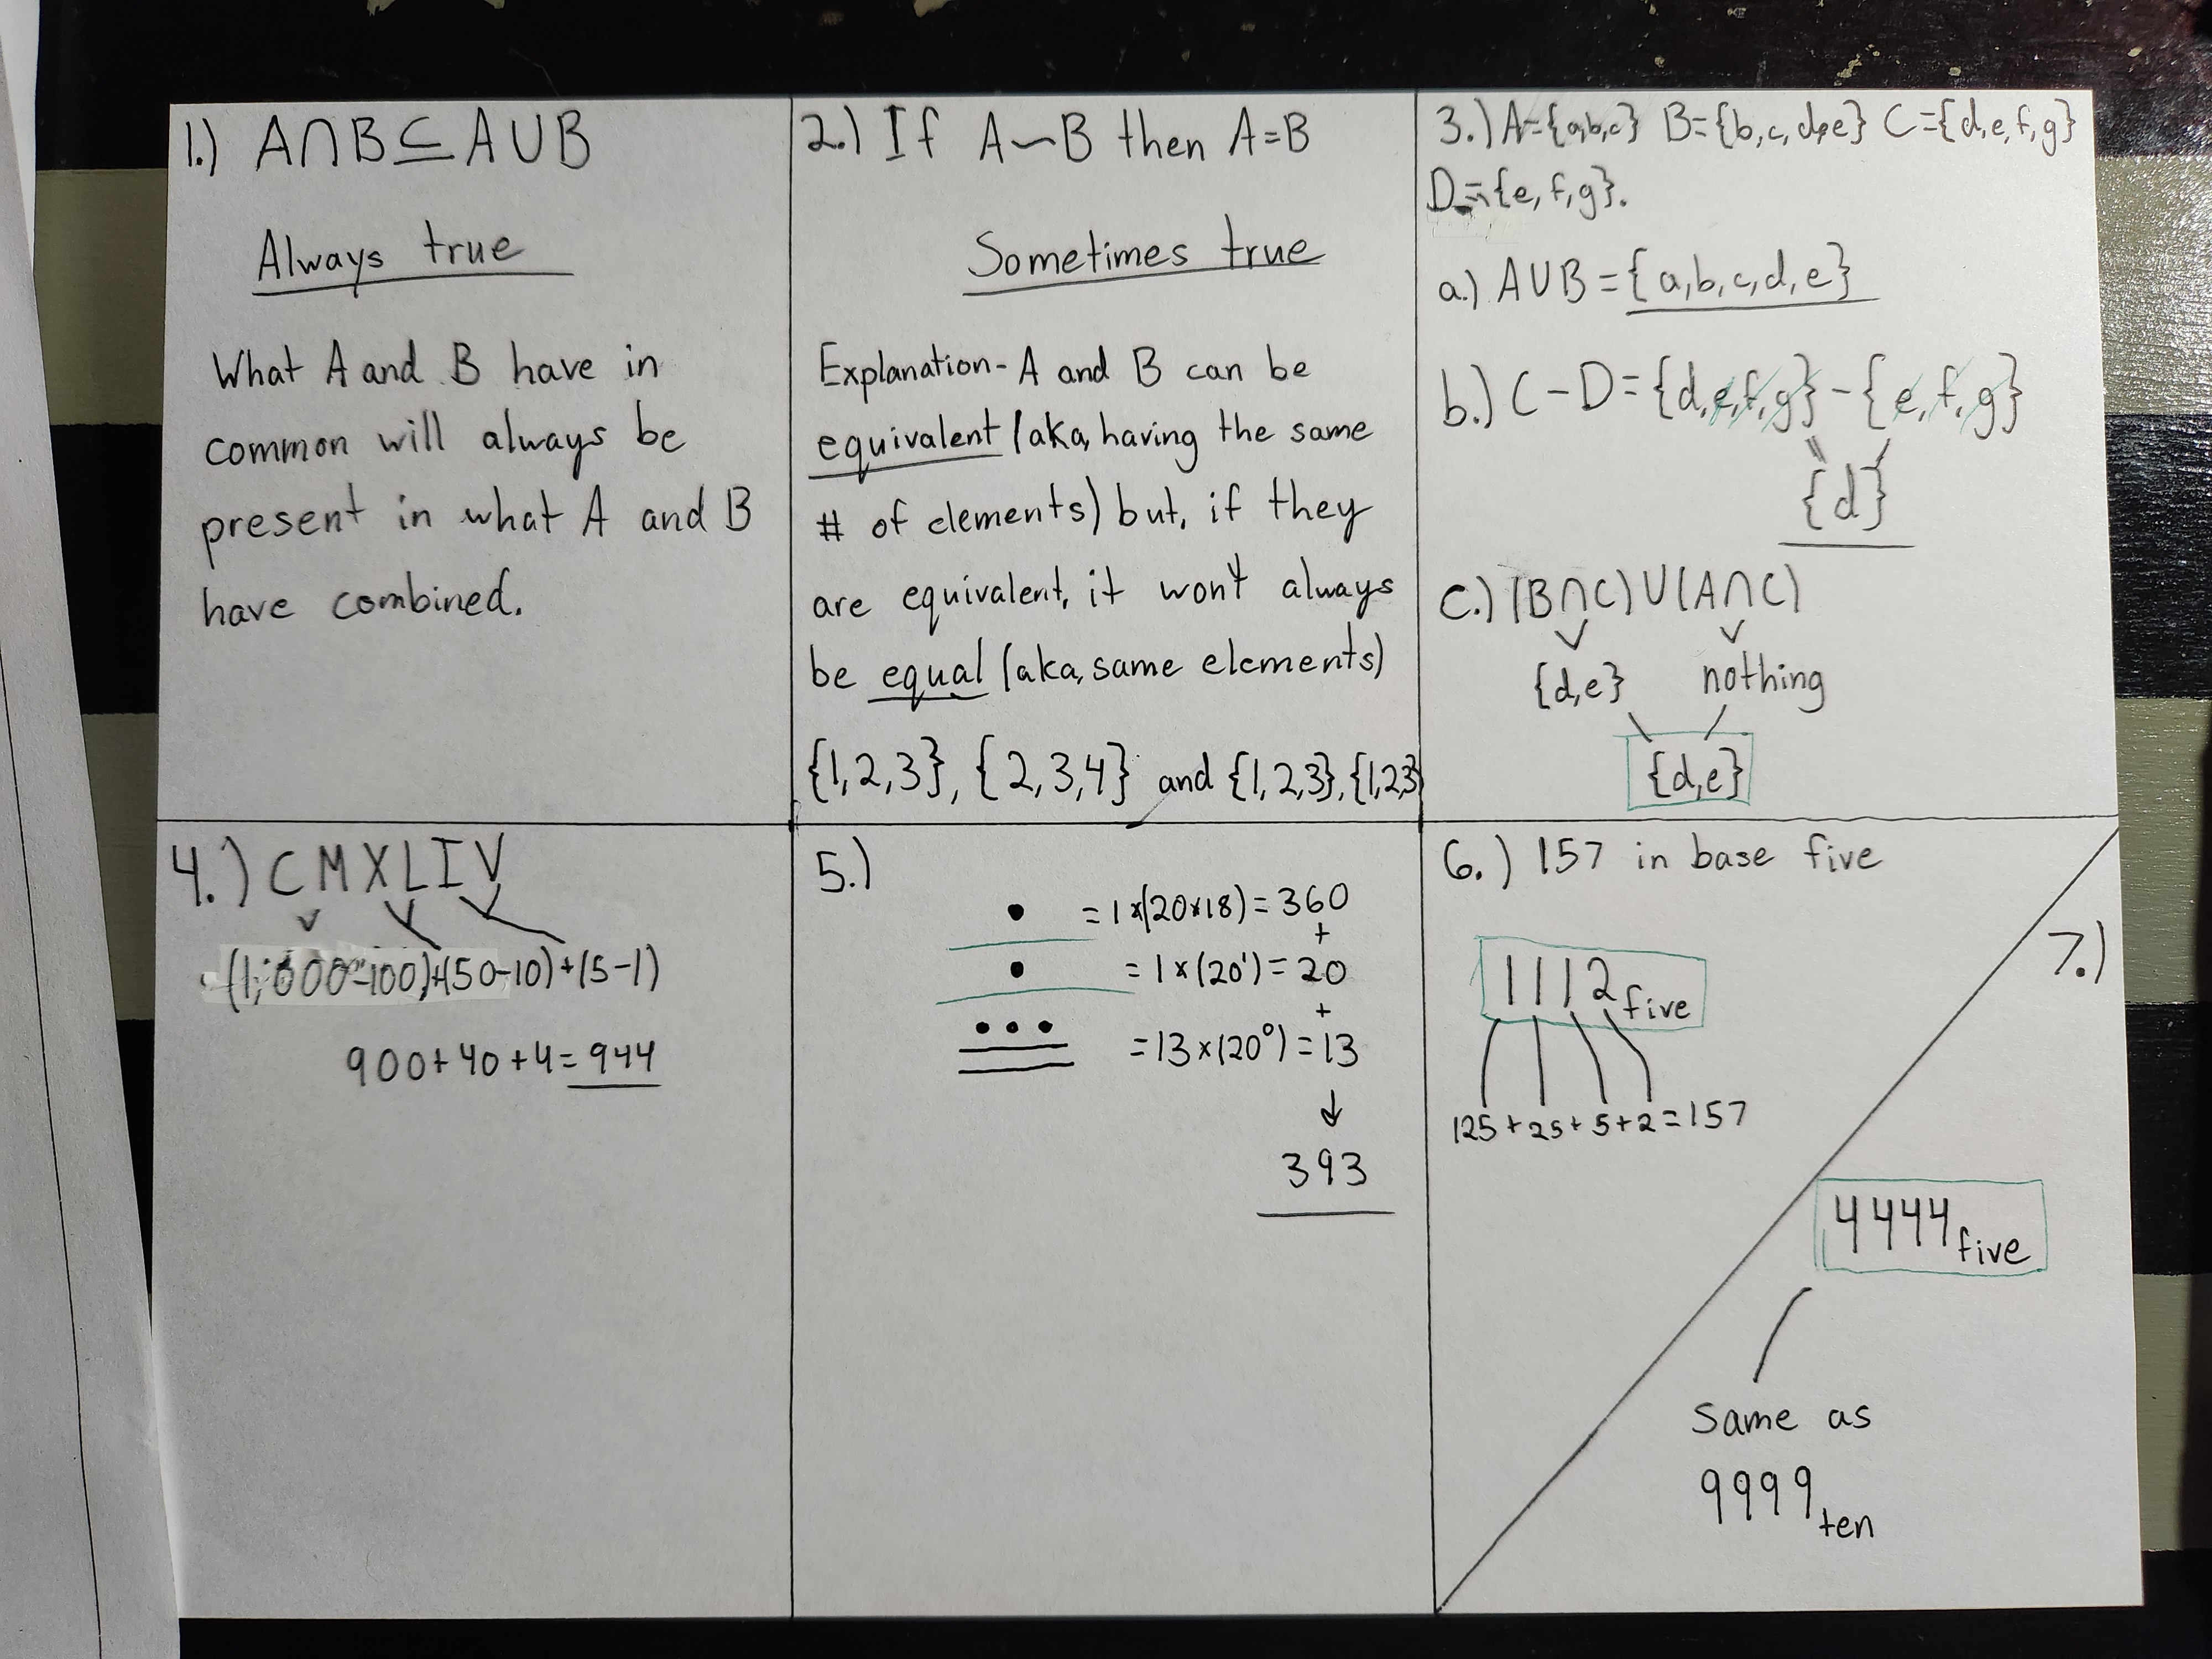 1.) A∩B⊆A∪B
Always true
What A and B have in
common will always be
present in what A and B
have combined.
2.) If A~B then A=B
Sometimes true
Explanation- A and B can be
equivalent (aka, having the same
# of elements) but, if they
are equivalent, it won't always
be equal (aka, same elements)
{1,2,3}, {2,3,4} and {1,2,3}, {1,2,3}
3.) A={a,b,c} B={b,c,d,e} C={d,e,f,g}
D={e,f,g}.
a.) A∪B={a,b,c,d,e}
b.) C-D={d,e,f,g}-{e,f,g}
{d}
c.) (B∩C)∪(A∩C)
{d,e} nothing
{d,e}
4.) CMXLIV
(1,000-100)+(50-10)+(5-1)
900+40+4=944
5.)
• =1×(20×18)=360
+
• =1×(20¹)=20
+
••• =13×(20⁰)=13
↓
393
6.) 157 in base five
1112five
125+25+5+2=157
7.)
4444five
Same as
9999ten